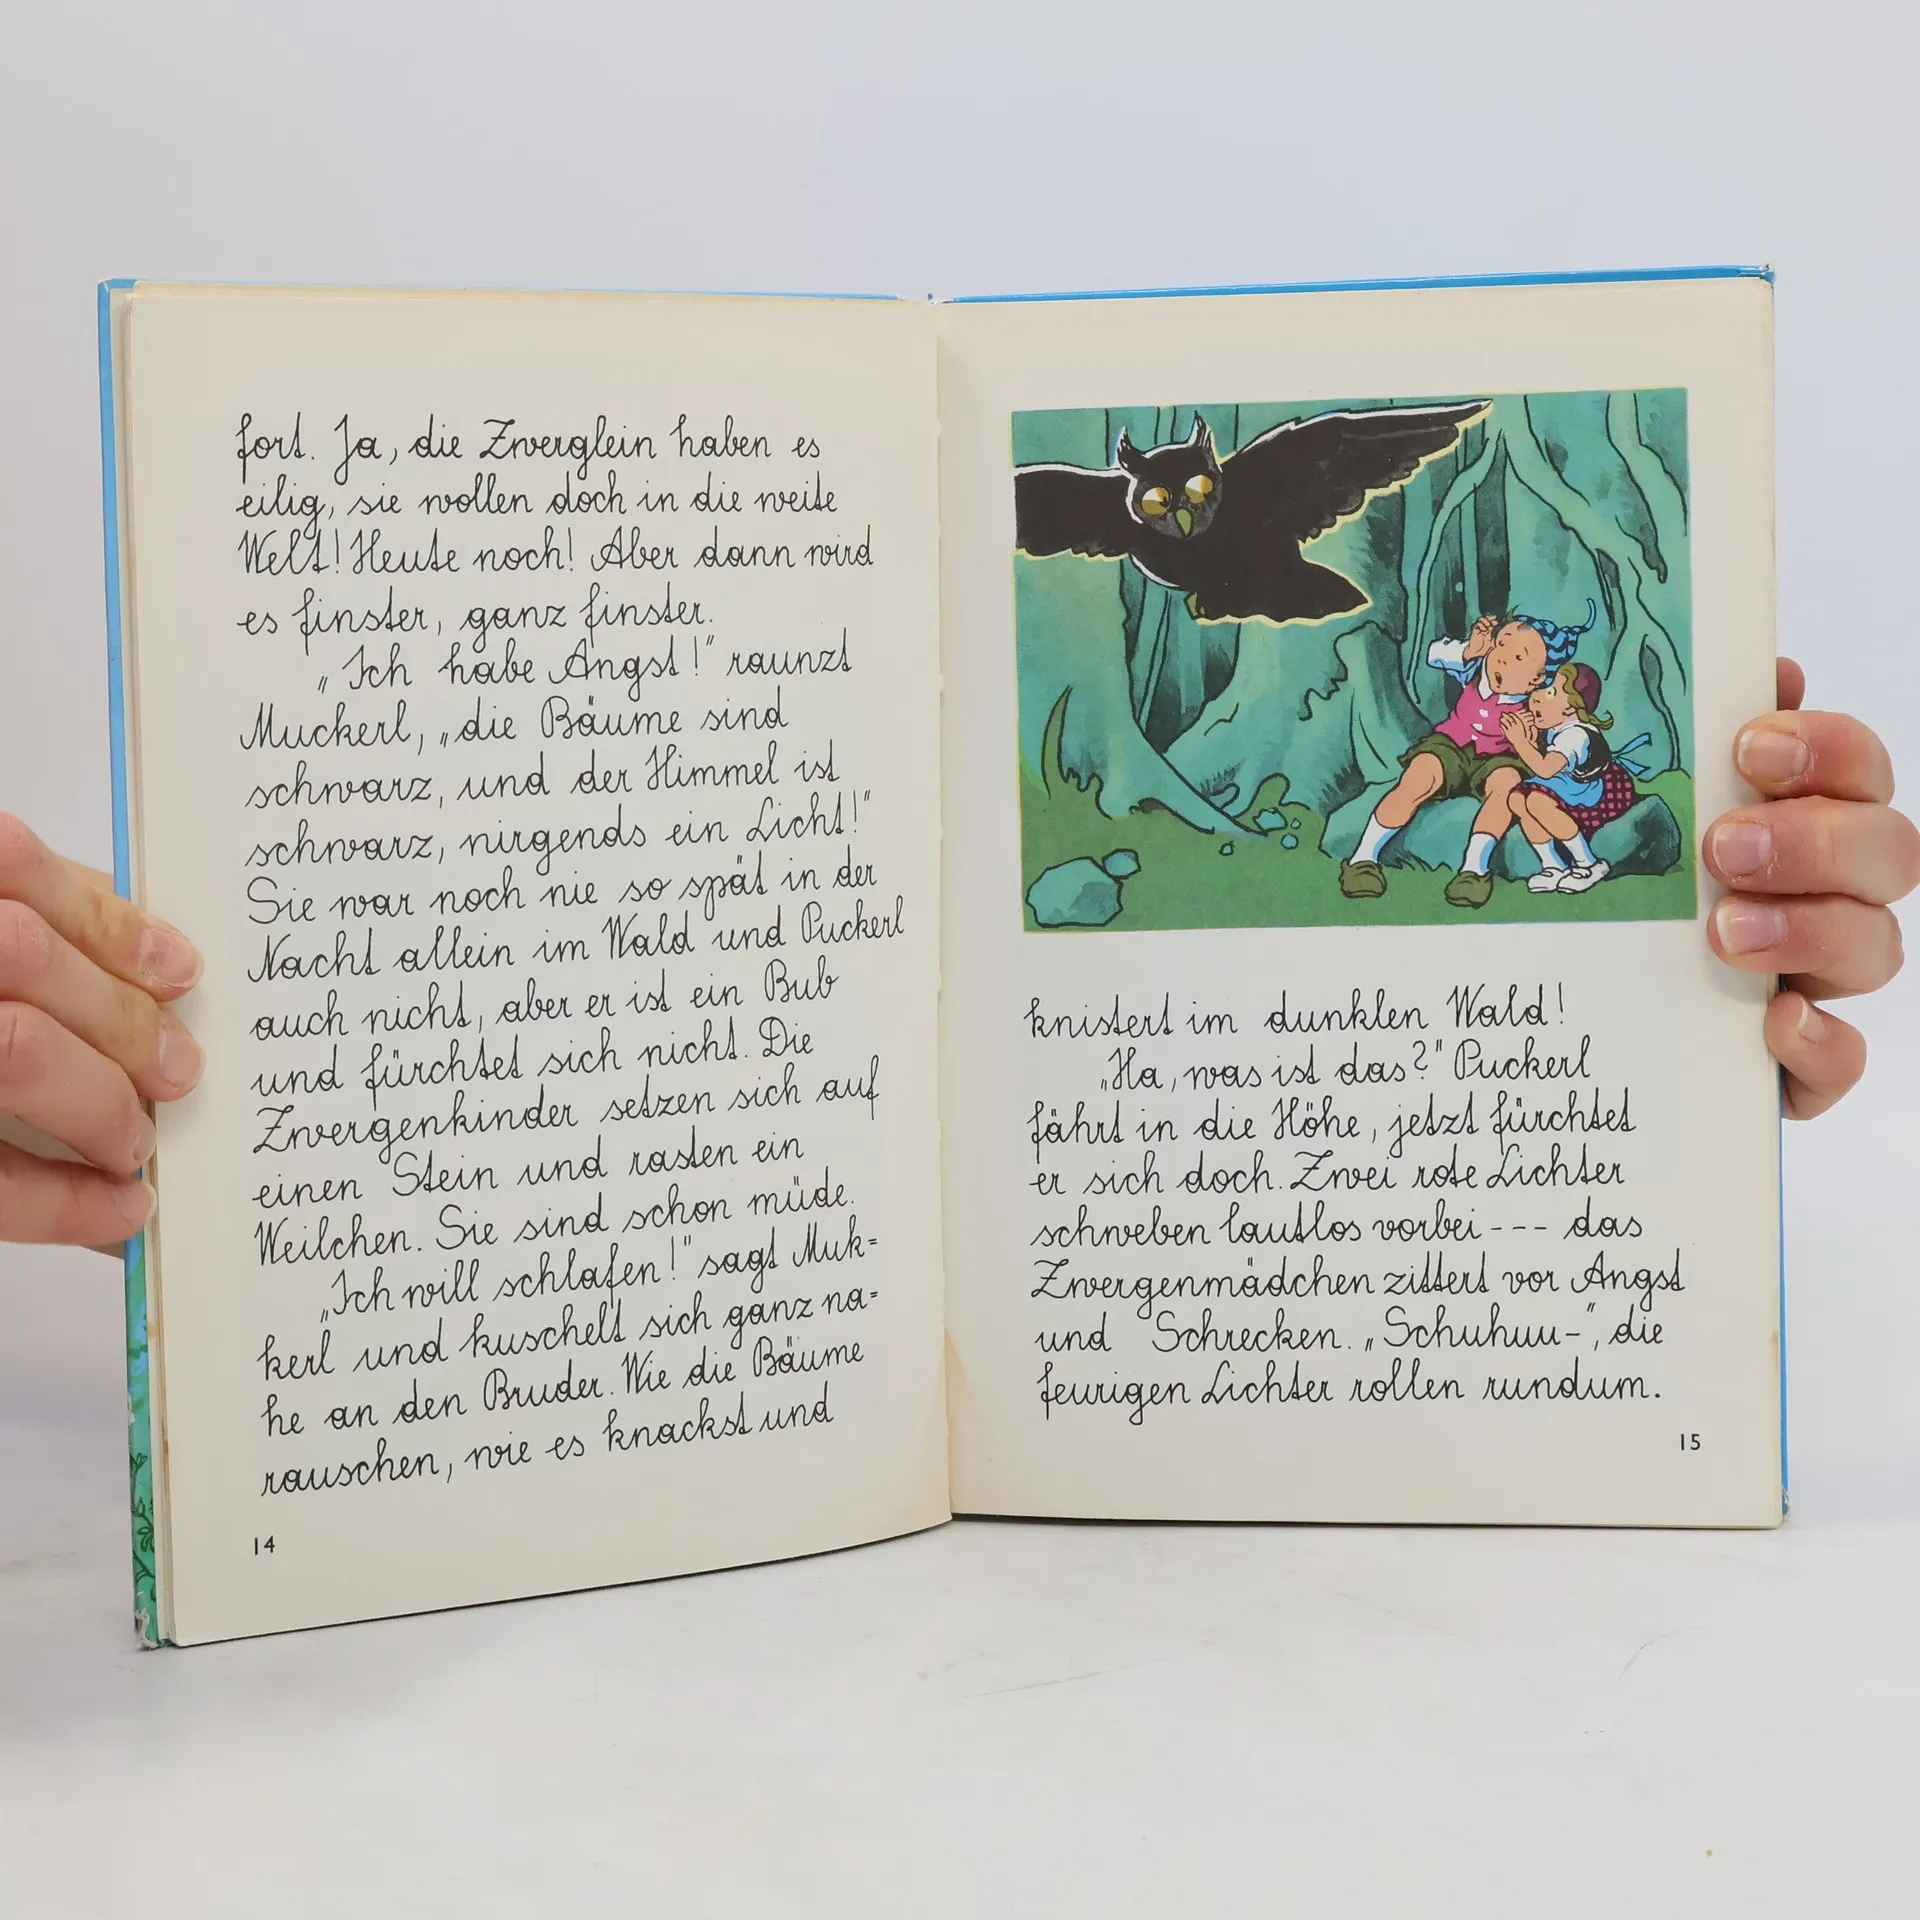 fort. Ja, die Zwerglein haben es
eilig, sie wollen doch in die weite
Welt! Heute noch! Aber dann wird
es finster, ganz finster.
„Ich habe Angst!" raunzt
Muckerl, „die Bäume sind
schwarz, und der Himmel ist
schwarz, nirgends ein Licht!"
Sie war noch nie so spät in der
Nacht allein im Wald und Puckerl
auch nicht, aber er ist ein Bub
und fürchtet sich nicht. Die
Zwergenkinder setzen sich auf
einen Stein und rasten ein
Weilchen. Sie sind schon müde.
„Ich will schlafen!" sagt Muk=
kerl und kuschelt sich ganz na=
he an den Bruder. Wie die Bäume
rauschen, wie es knackst und
14
knistert im dunklen Wald!
„Ha, was ist das?" Puckerl
fährt in die Höhe, jetzt fürchtet
er sich doch. Zwei rote Lichter
schweben lautlos vorbei --- das
Zwergenmädchen zittert vor Angst
und Schrecken. „Schuhuu-", die
feurigen Lichter rollen rundum.
15